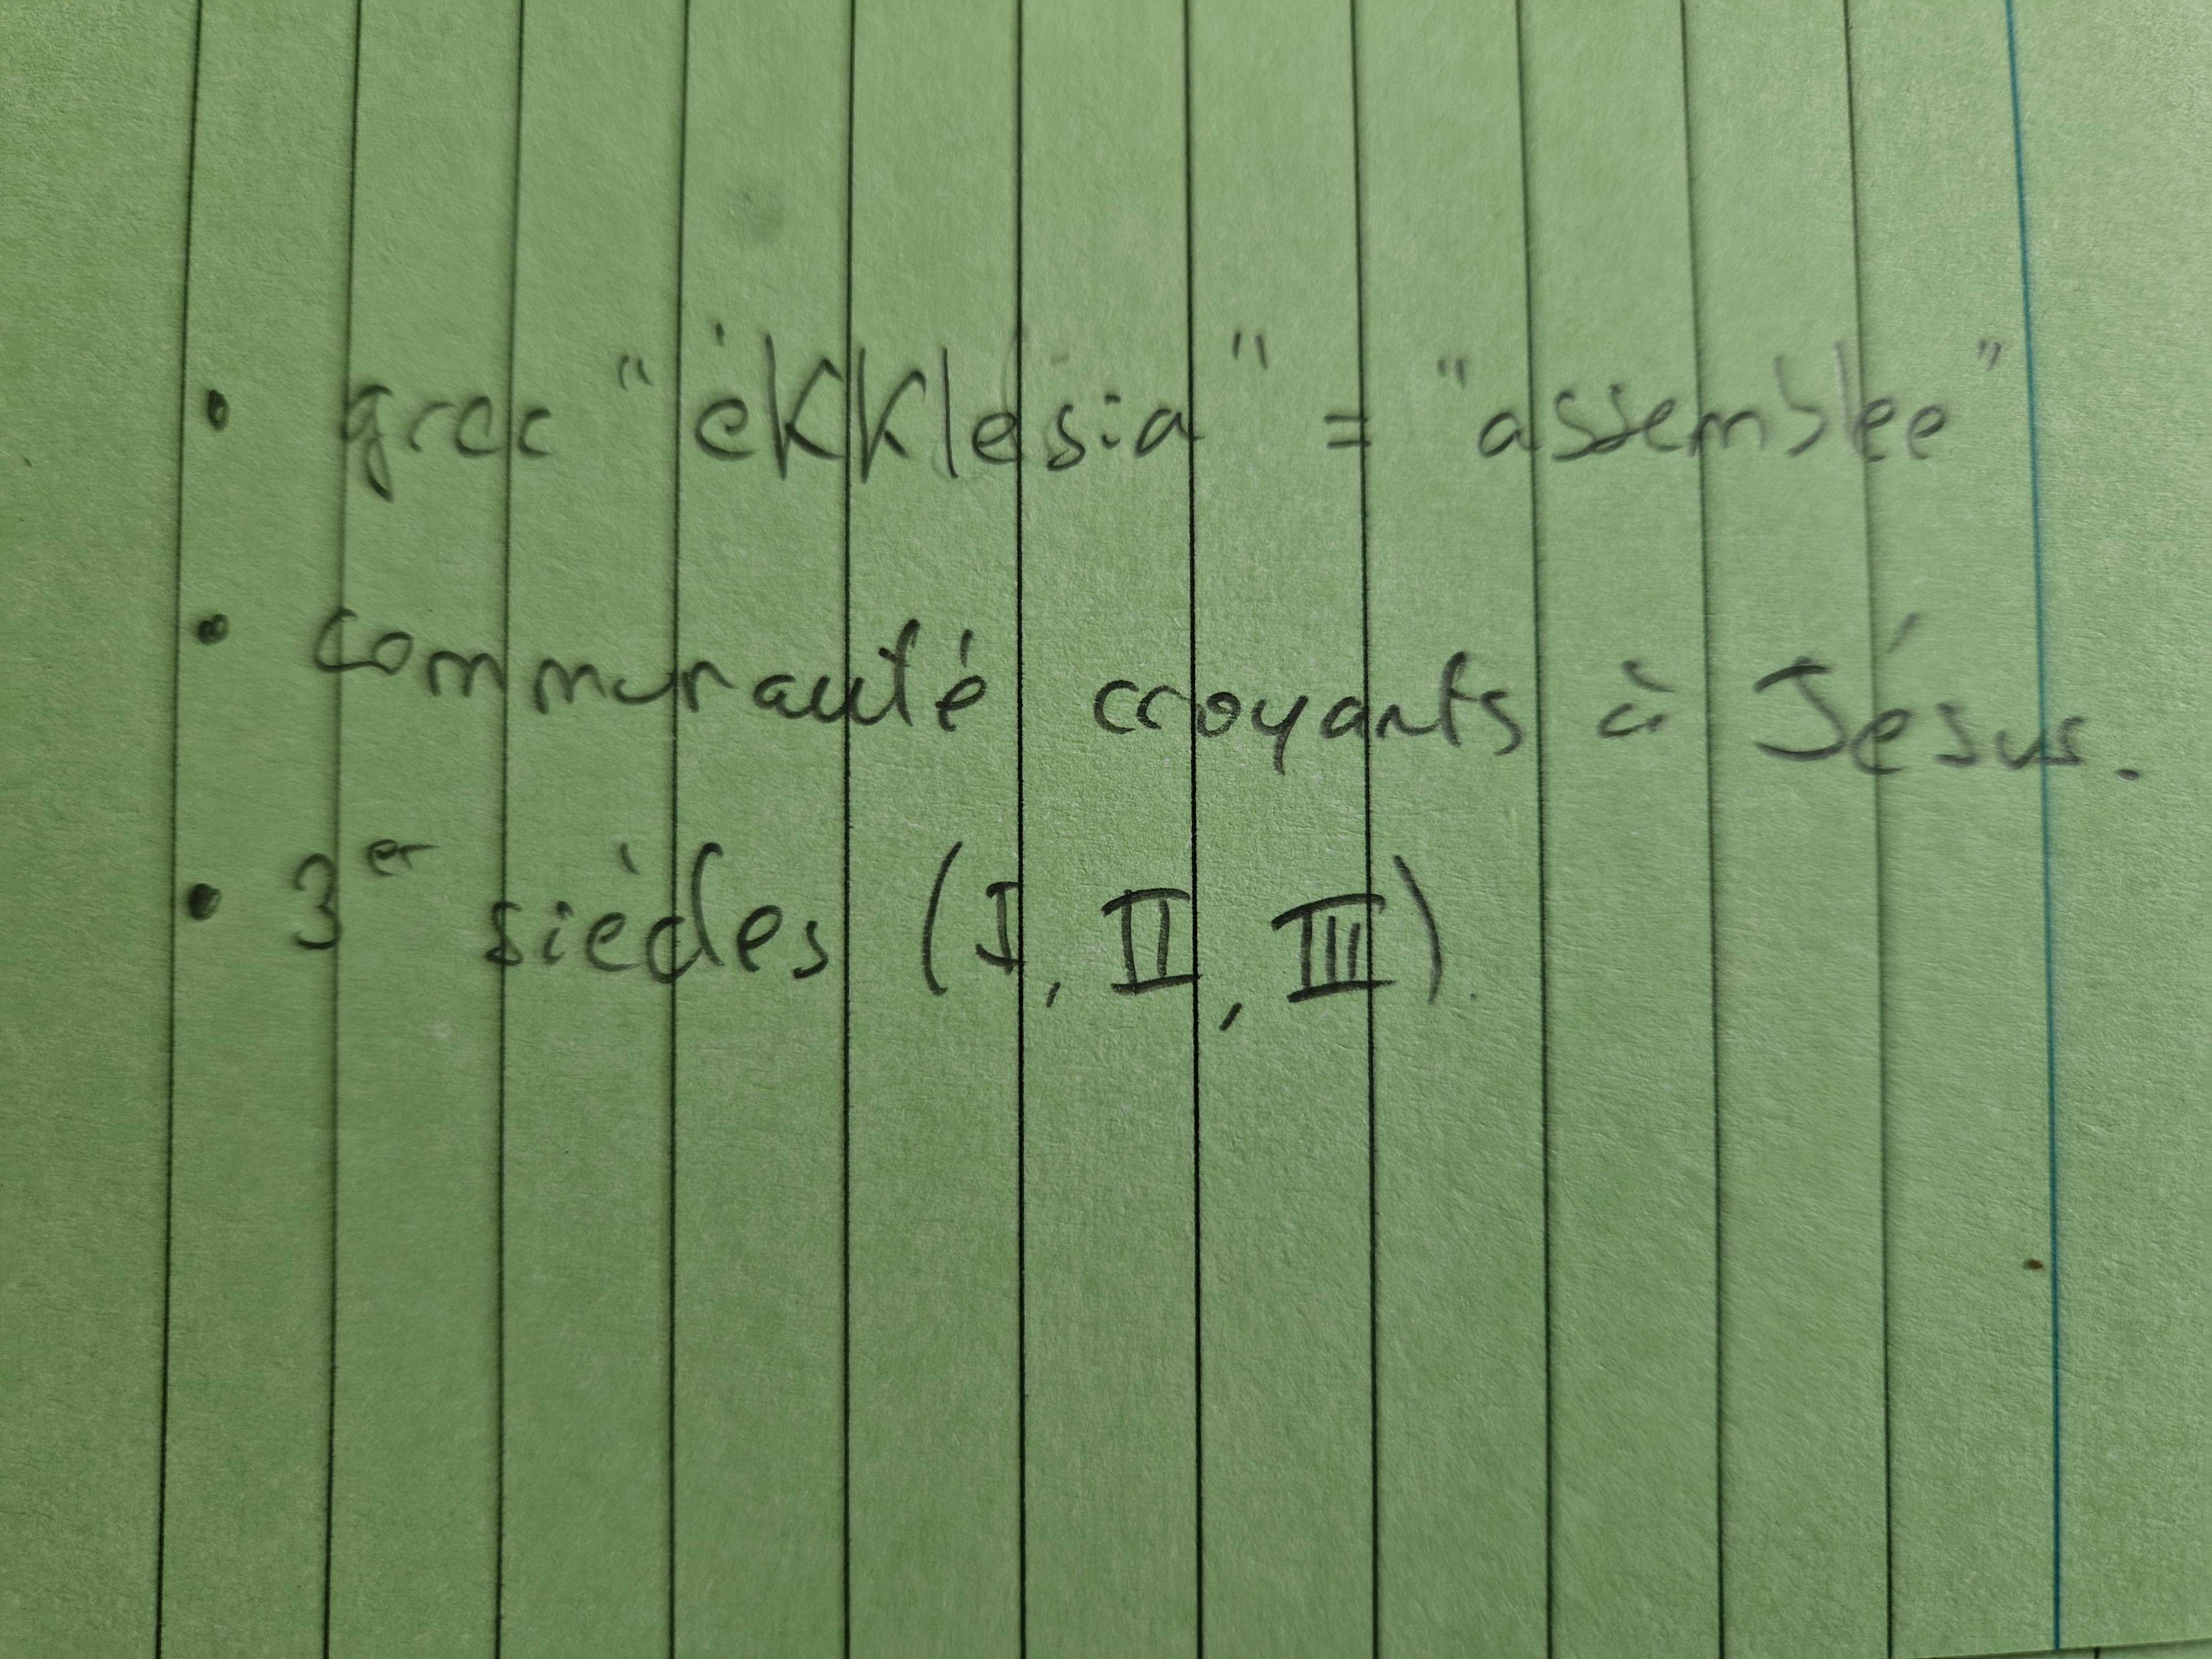 • grec "ékklésia" = "assemblée"
• communauté croyants à Jésus.
• 3er siècles (I, II, III).